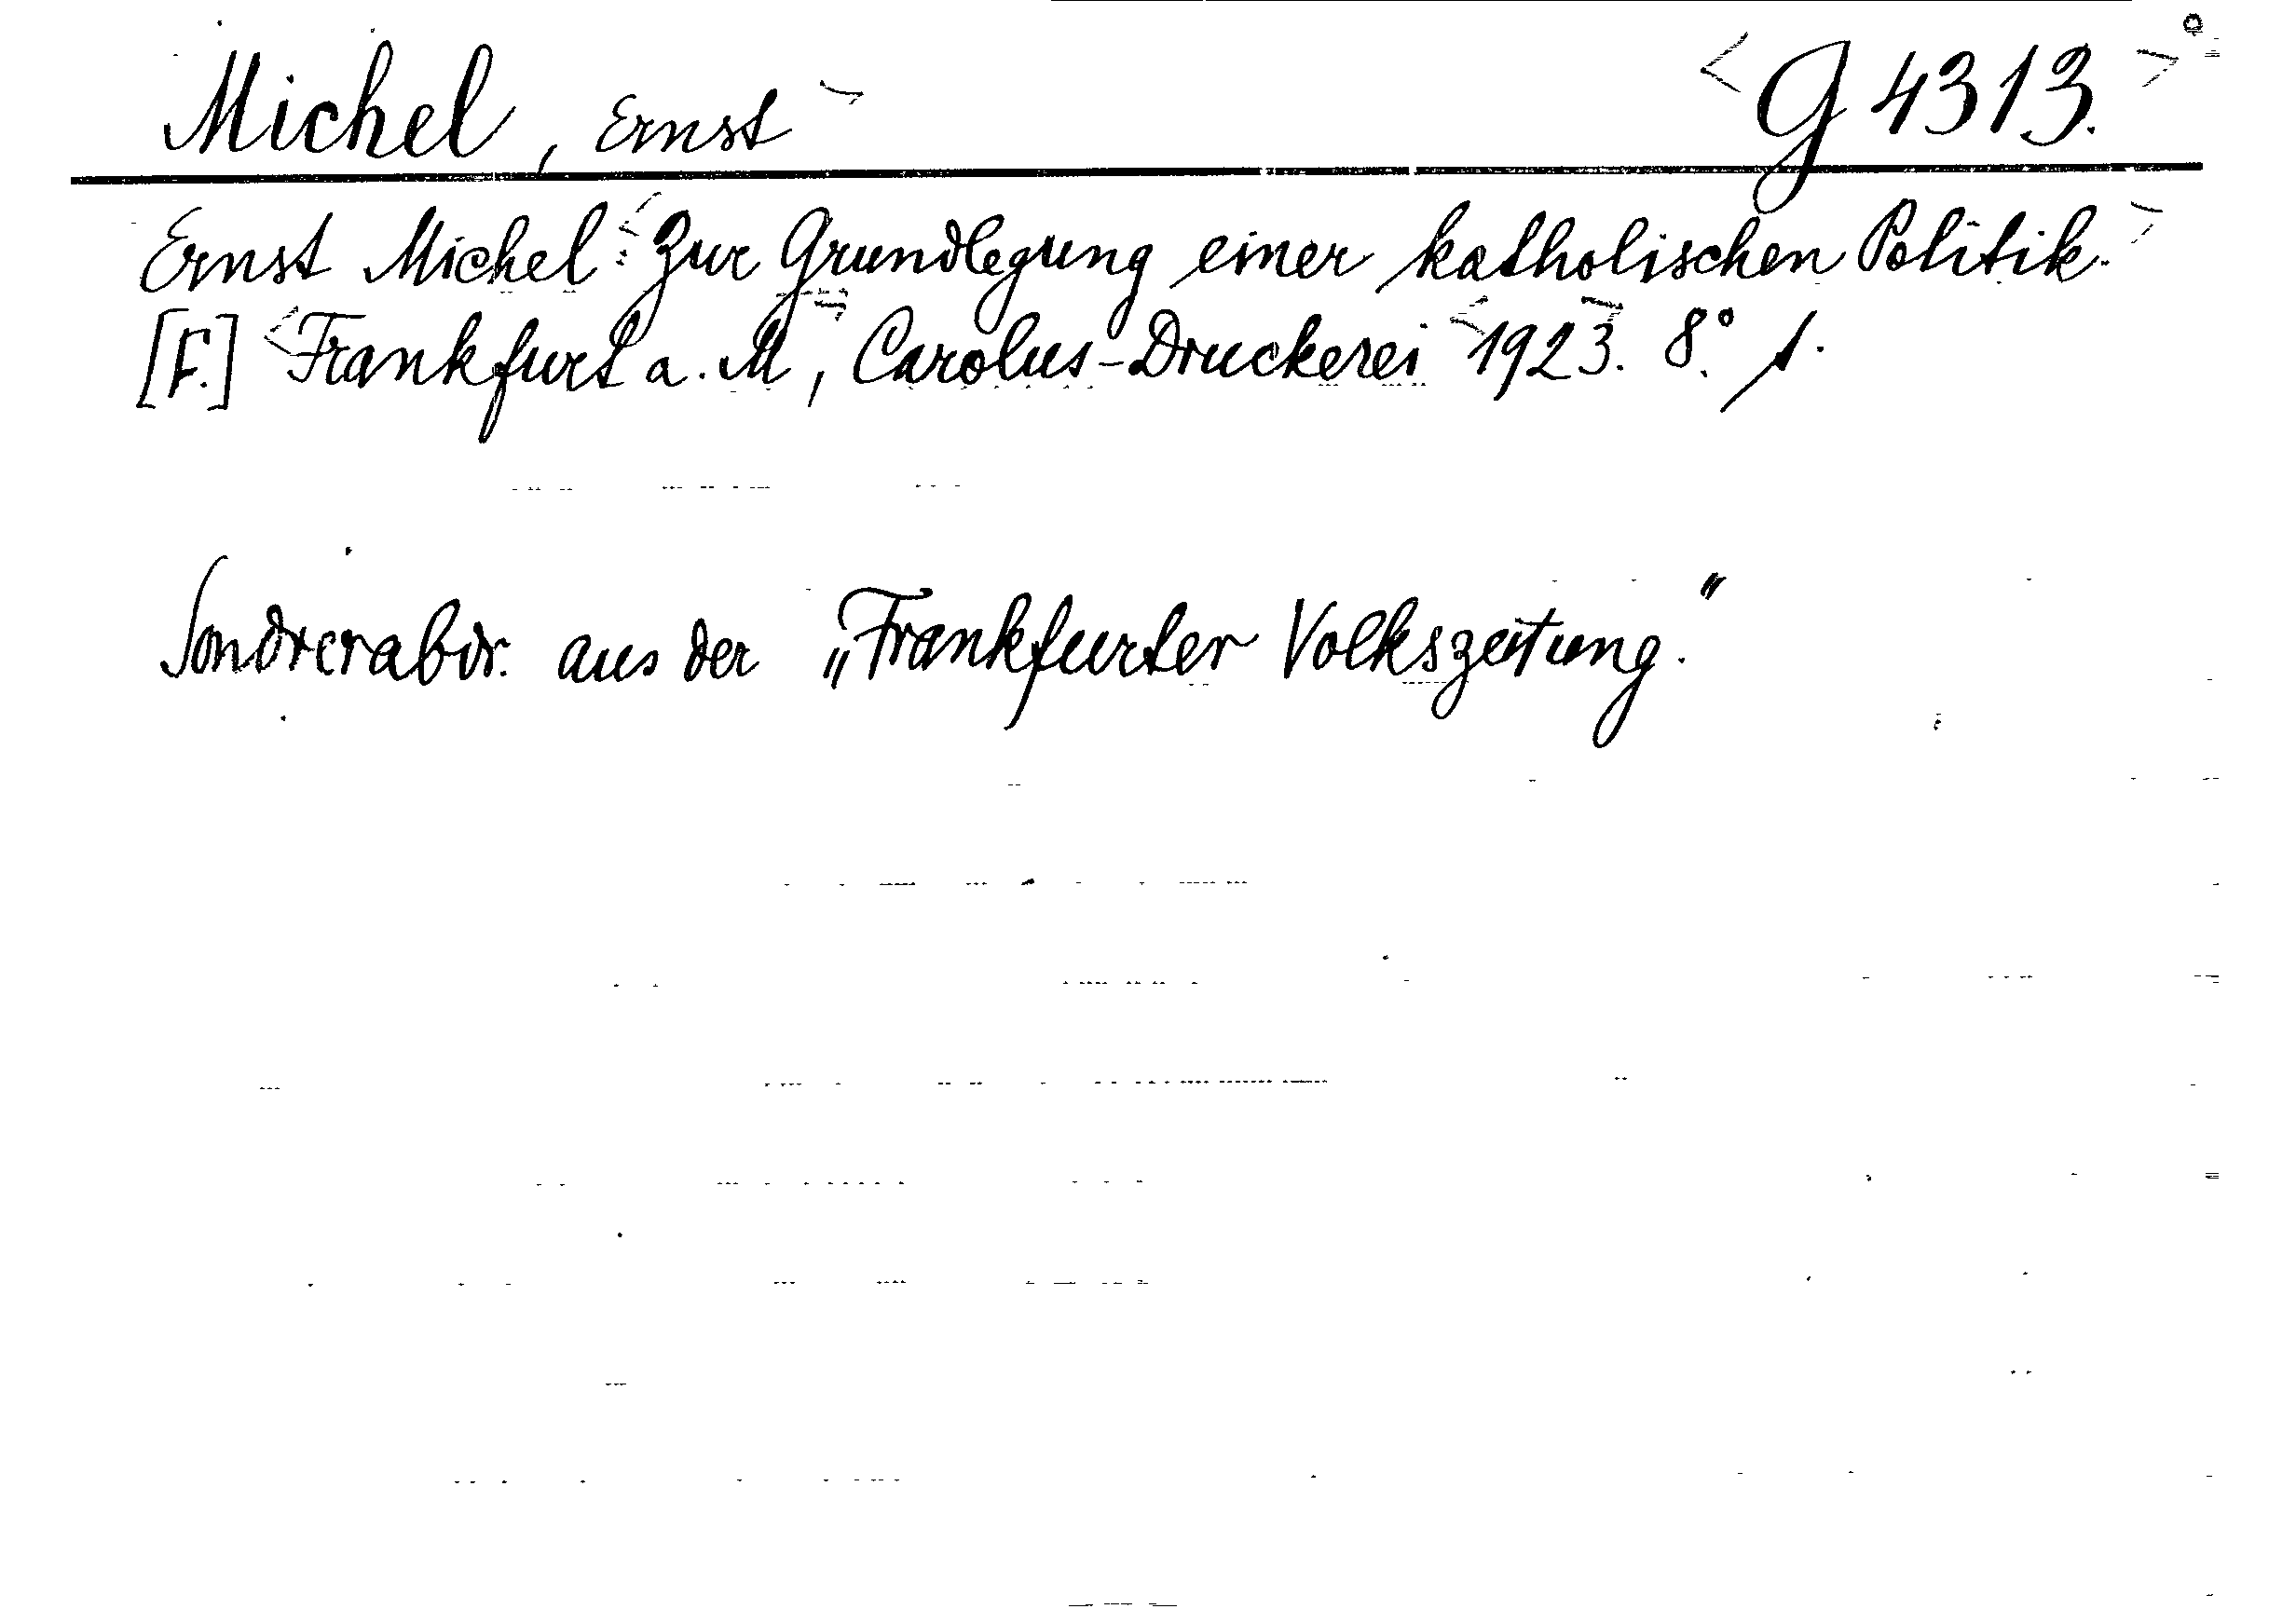 Michel, Ernst <G 4313.>
Ernst Michel: <Zur Grundlegung einer katholischen Politik.>
[F.] <Frankfurt a. M>, Carolus-Druckerei <1923>. 8°.
Sonderabdr. aus der „Frankfurter Volkszeitung."